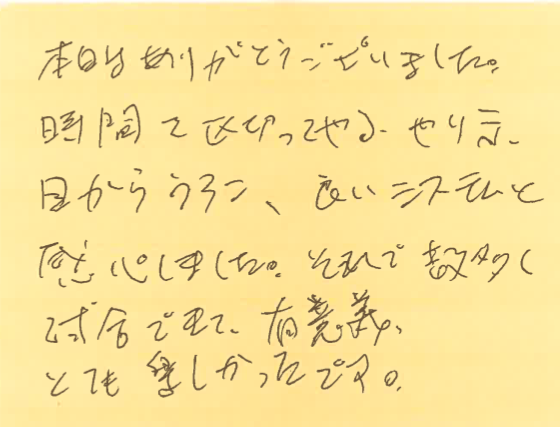 本日はありがとうございました。
時間で区切ってやる、やり方、
目からうろこ、良いシステムと
感心しました。それで数多く
試合できて、有意義、
とても楽しかったです。